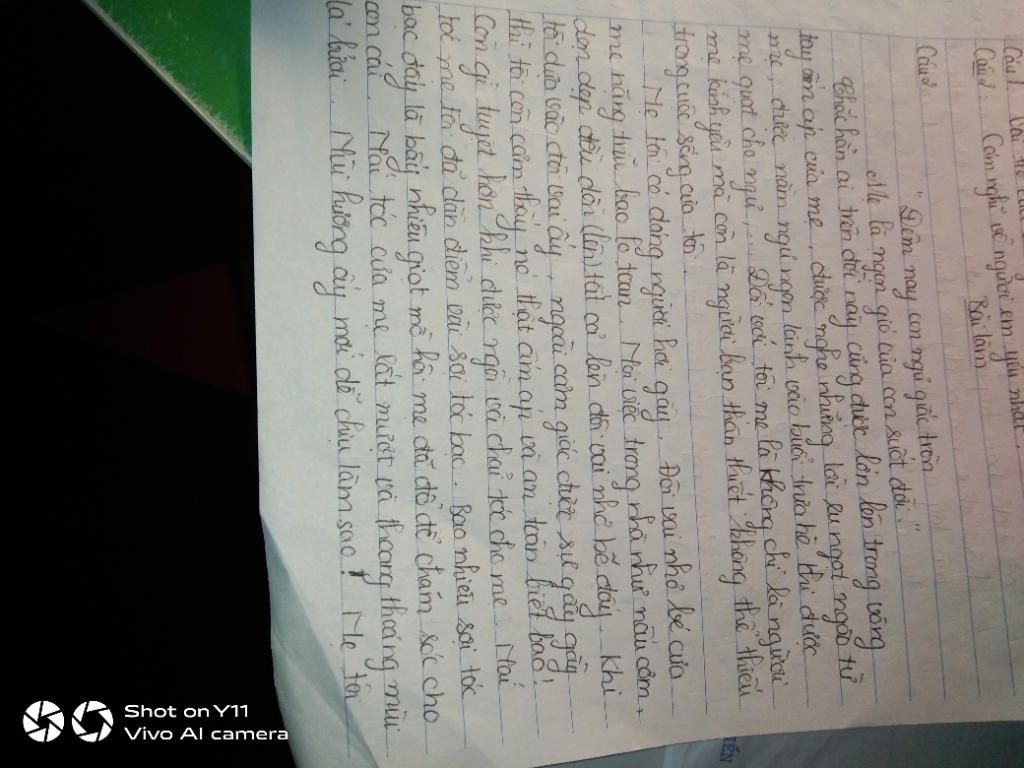 Câu 1
Câu 2: Cảm nghĩ về người em yêu nhất.
Bài làm
Câu 2:
"Đêm nay con ngủ giấc tròn
Mẹ là ngọn gió của con suốt đời."
Chắc hẳn ai trên đời này cũng được lớn lên trong vòng
tay ấm áp của mẹ, được nghe những lời ru ngọt ngào từ
mẹ, được nằm ngủ ngon lành vào buổi trưa hè khi được
mẹ quạt cho ngủ,... Đối với tôi mẹ là không chỉ là người
mẹ kính yêu mà còn là người bạn thân thiết không thể thiếu
trong cuộc sống của tôi.
Mẹ tôi có dáng người hơi gầy. Đôi vai nhỏ bé của
mẹ nặng trĩu bao lo toan. Mọi việc trong nhà như nấu cơm,
dọn dẹp đều dồn (lên) tất cả lên đôi vai nhỏ bé đấy. Khi
tôi dựa vào đôi vai ấy, ngoài cảm giác được sự gầy gầy
thì tôi còn cảm thấy nó thật ấm áp và an toàn biết bao!
Còn gì tuyệt hơn khi được ngồi và chải tóc cho mẹ. Mái
tóc mẹ tôi đã dần điểm vài sợi tóc bạc. Bao nhiêu sợi tóc
bạc đấy là bấy nhiêu giọt mồ hôi mẹ đã đổ để chăm sóc cho
con cái. Mái tóc của mẹ lất mượt và thoang thoáng mùi
lá bưởi. Mùi hương ấy mới dễ chịu làm sao! Mẹ tôi
IẾN
Shot on Y11
Vivo AI camera